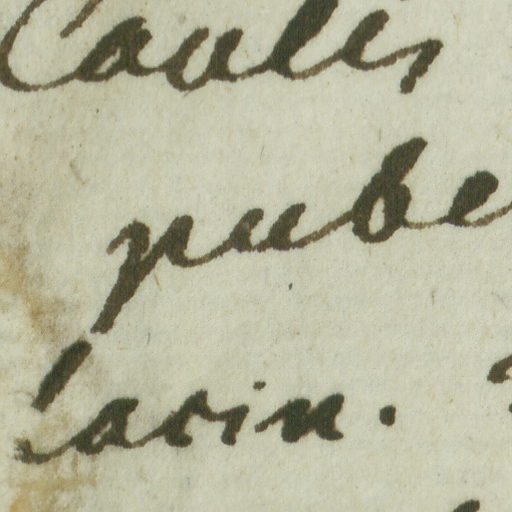 Caulis,
pube
lacin.